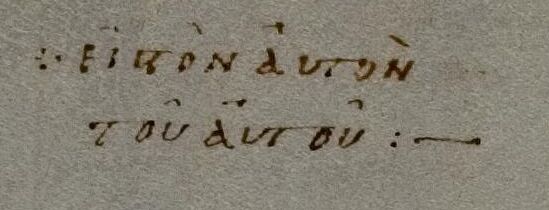 :· εἰκὸν ἀυτὸν
τοῦ ἀυτοῦ :—